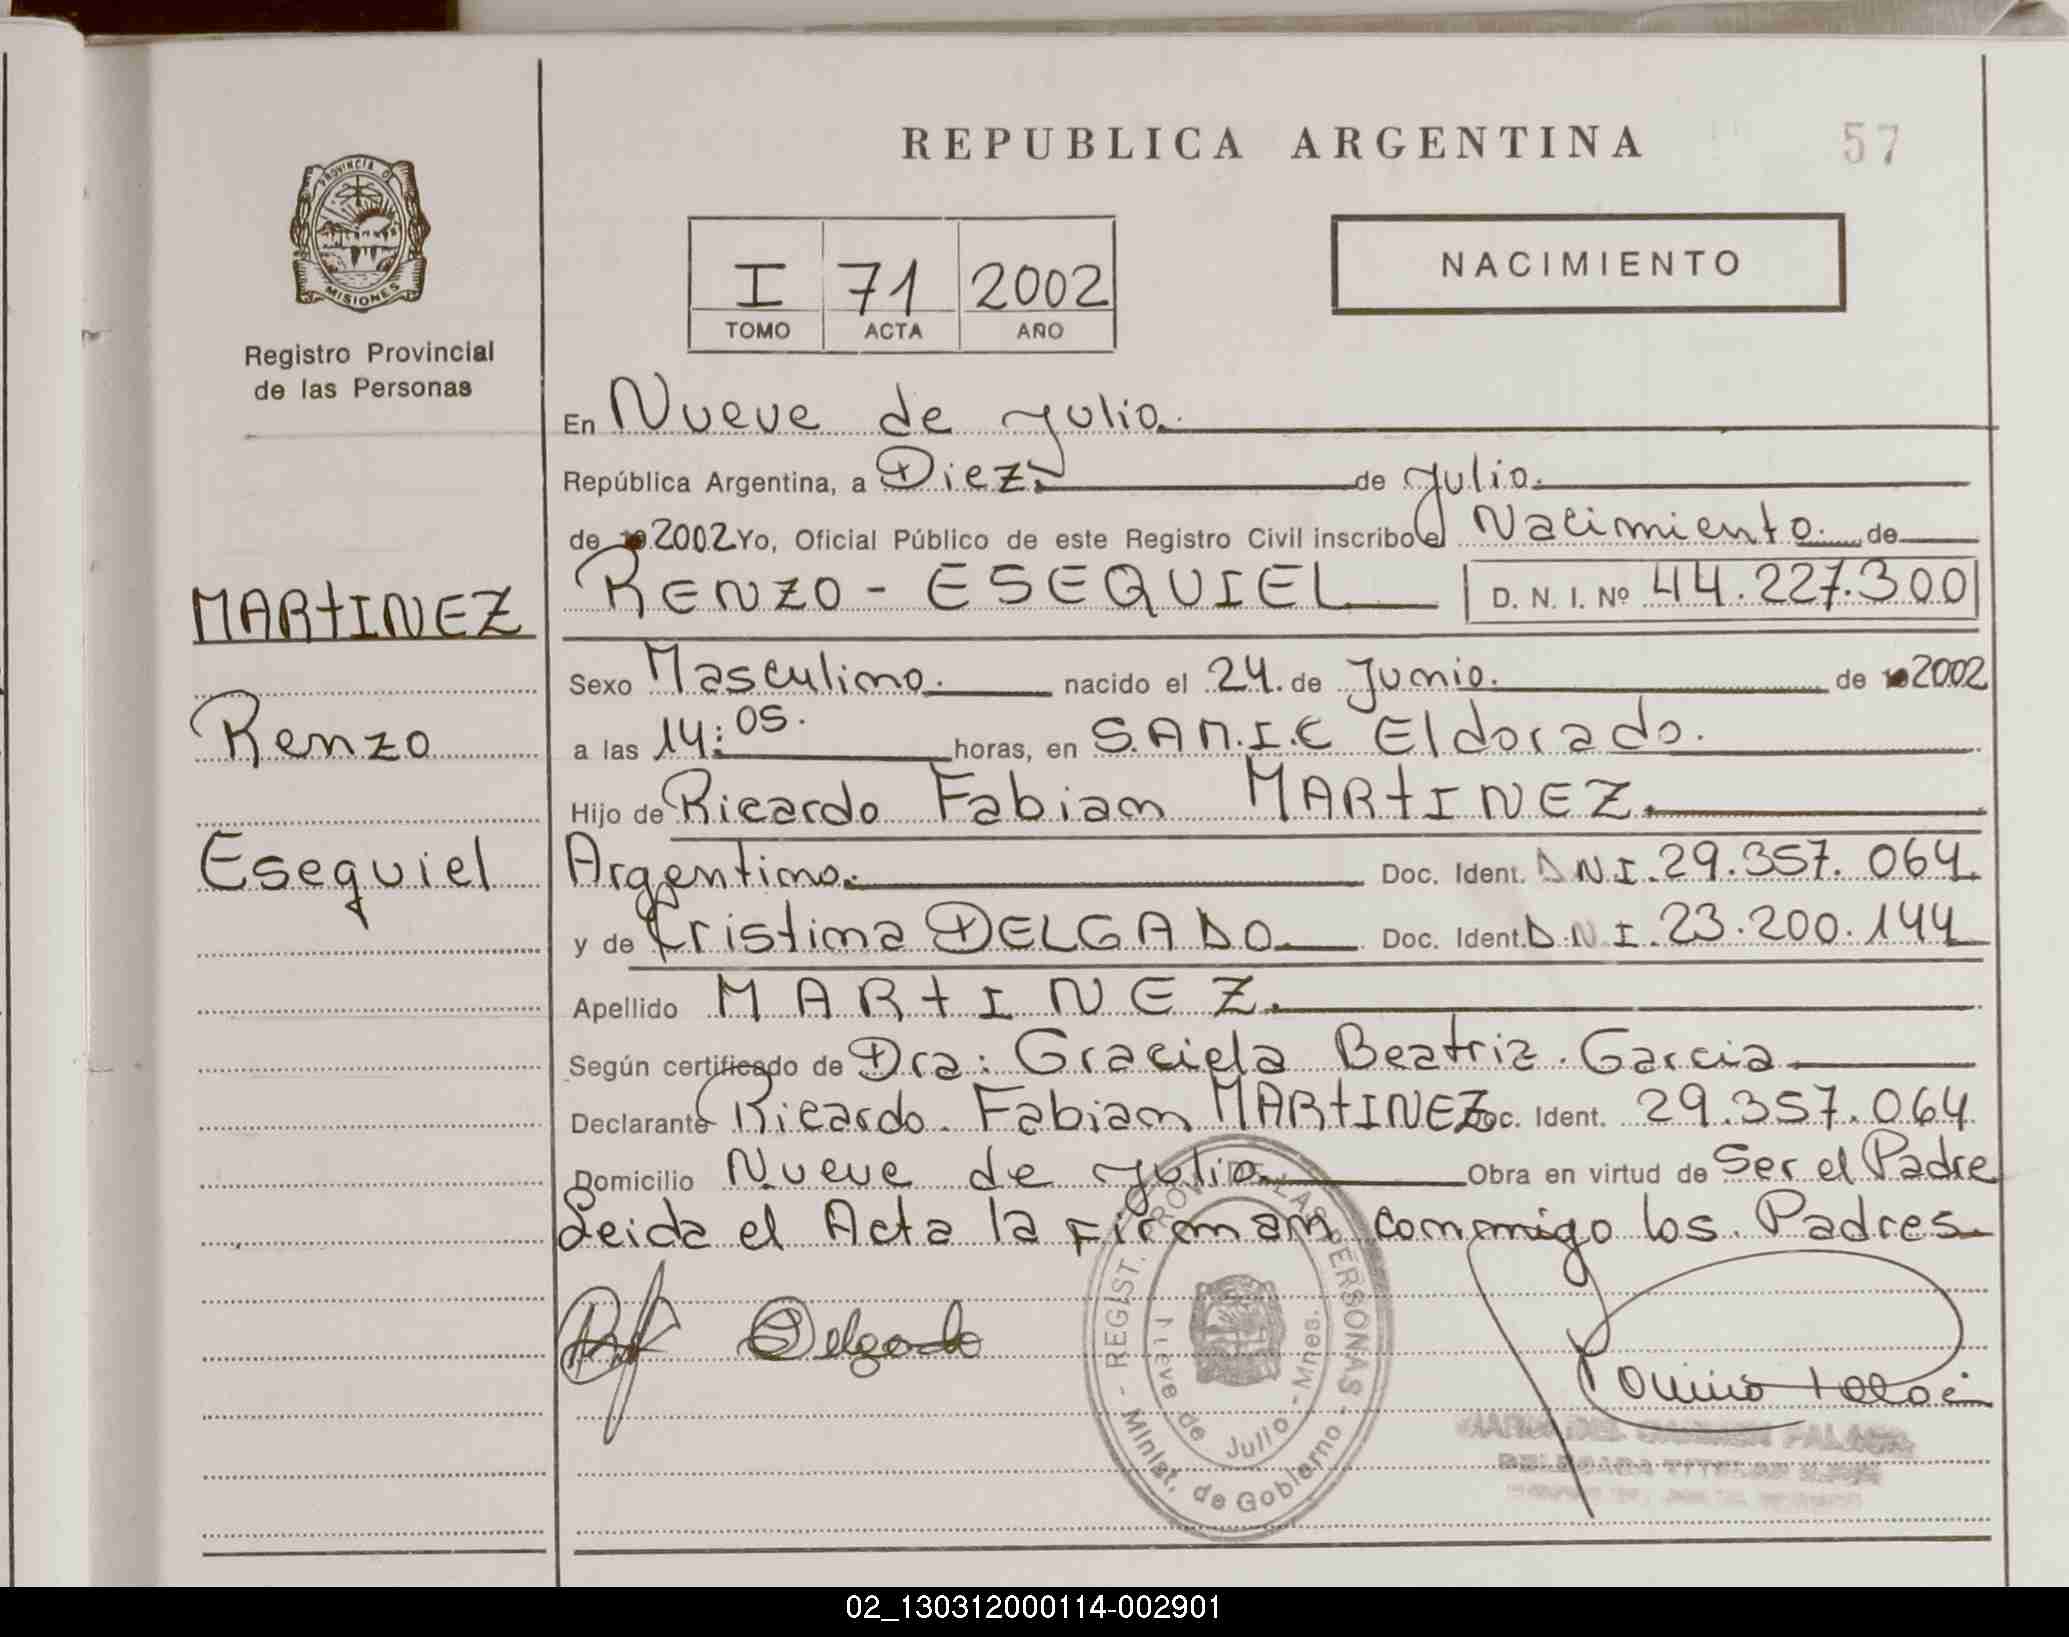 REPUBLICA ARGENTINA
57
PROVINCIA DE
MISIONES
Registro Provincial
de las Personas
I 71 2002
TOMO ACTA AÑO
NACIMIENTO
En Nueve de Julio.
República Argentina, a Diez. de Julio.
de 2002 Yo, Oficial Público de este Registro Civil inscribo el Nacimiento de
RENZO - ESEQUIEL D. N. I. Nº 44.227.300
MARTINEZ
Renzo
Esequiel
Sexo Masculino. nacido el 24. de Junio. de 2002
a las 14:05. horas, en S.A.M.I.C Eldorado.
Hijo de Ricardo Fabian MARTINEZ.
Argentino. Doc. Ident. DNI. 29.357.064.
y de Cristina DELGADO. Doc. Ident. DNI. 23.200.144
Apellido MARTINEZ.
Según certificado de Dra: Graciela Beatriz. Garcia
Declarante Ricardo. Fabian MARTINEZ Doc. Ident. 29.357.064
Domicilio Nueve de Julio. Obra en virtud de Ser el Padre
Leida el Acta la Firman conmigo los Padres.
Delgado
- REGIST. PROV. DE LAS PERSONAS -
Minist. de Gobierno
Nueve de Julio - Mnes.
02_130312000114-002901